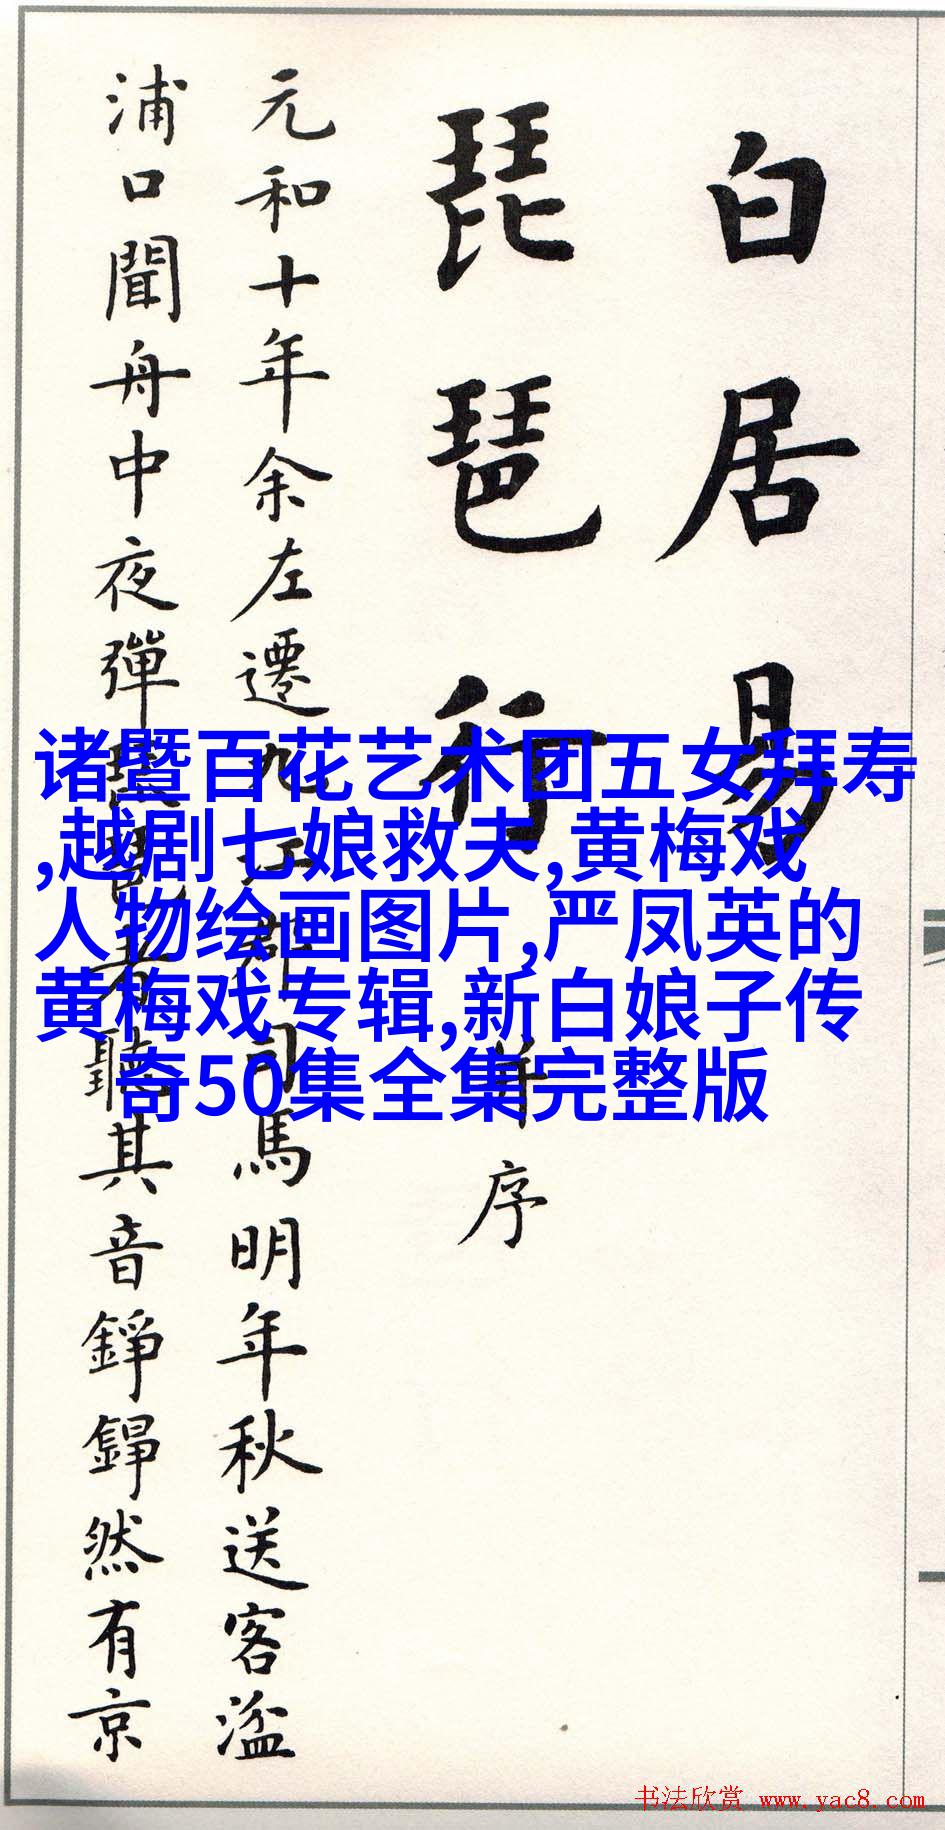 白居易
琵琶行
并序
元和十年余左遷九江郡司馬明年秋送客湓
浦口聞舟中夜彈琵琶者聽其音錚錚然有京
诸暨百花艺术团五女拜寿
,越剧七娘救夫,黄梅戏
人物绘画图片,严凤英的
黄梅戏专辑,新白娘子传
奇50集全集完整版
书法欣赏 www.yac8.com